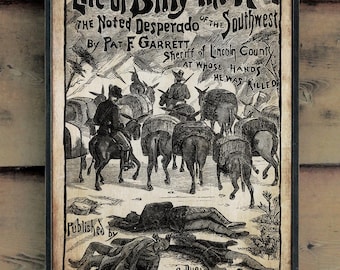 Life of Billy the Kid
The Noted Desperado of the Southwest
By Pat F. Garrett
Sheriff of Lincoln County
At Whose Hands
He Was Killed
Published by